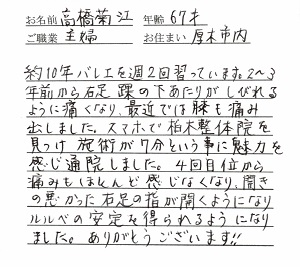 お名前 高橋菊江 年齢 67才
ご職業 主婦 お住まい 厚木市内
約10年バレエを週2回習っています。2〜3
年前から右足踝の下あたりがしびれる
ように痛くなり、最近では膝も痛み
出しました。スマホで柏木整体院を
見つけ施術が7分という事に魅力を
感じ通院しました。4回目位から
痛みもほとんど感じなくなり、開き
の悪かった右足の指が開くようになり
ルルベの安定を得られるようになり
ました。ありがとうございます!!